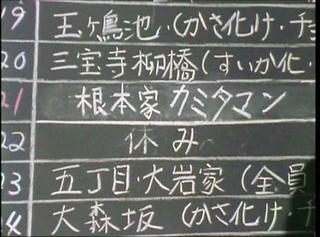 19 玉鳴池・(かさ化け・チ
20 三宝寺柳橋(すいか化・
21 根本家 カミタマン
22 休み
23 五丁目・大岩家 (全員
24 大森坂 (かさ化け・チ